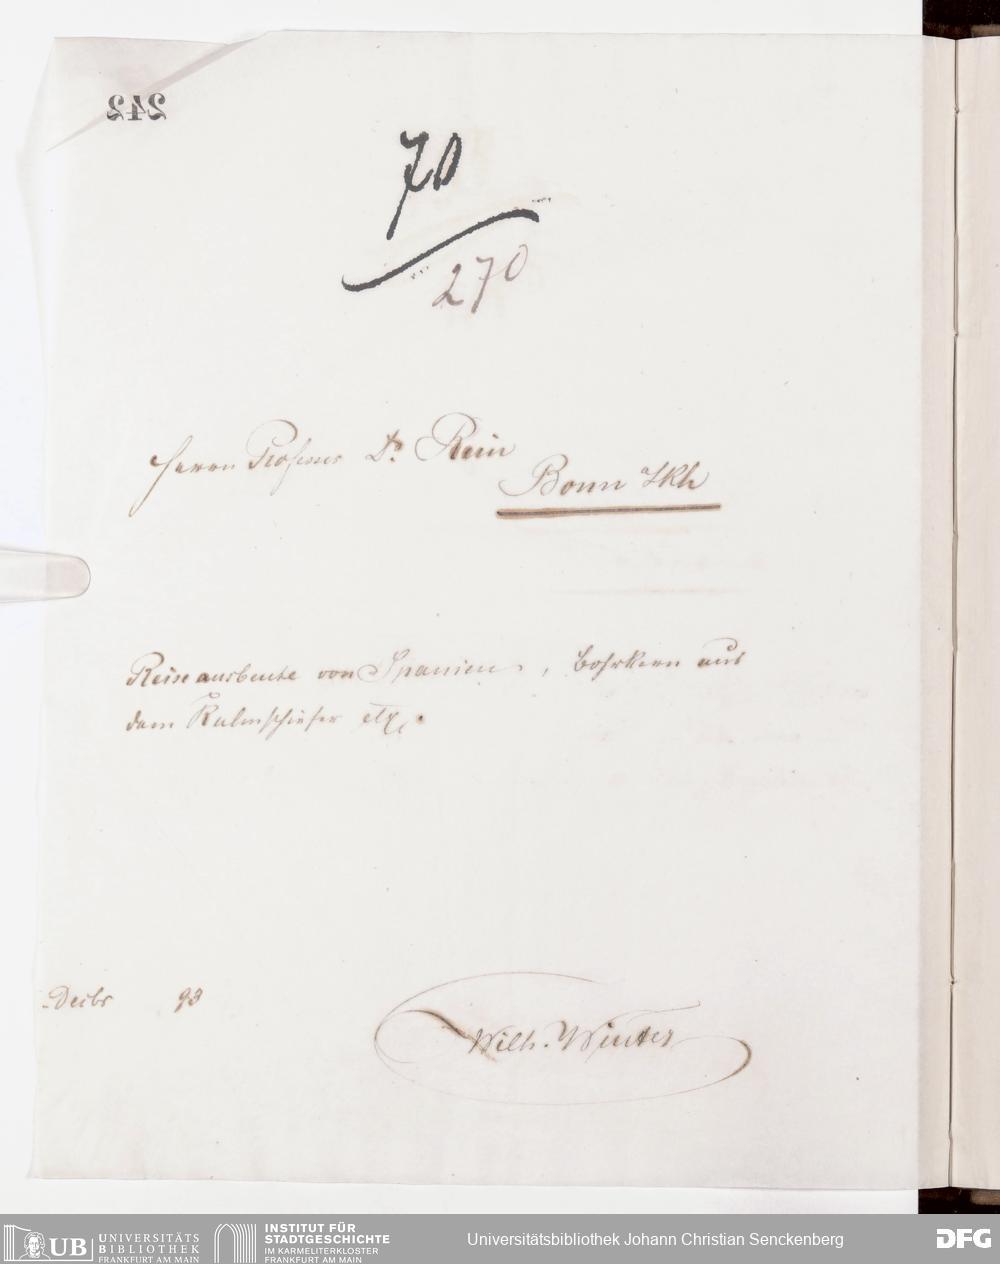 242
70
270
Herrn Professor Dr. Rein
Bonn a/Rh
Reiseausbeute von Spanien, Bohrkern aus
dem Kulmschiefer etz.
Decbr 93
Wilh. Winter
UB UNIVERSITÄTS BIBLIOTHEK FRANKFURT AM MAIN
INSTITUT FÜR STADTGESCHICHTE IM KARMELITERKLOSTER FRANKFURT AM MAIN
Universitätsbibliothek Johann Christian Senckenberg
DFG